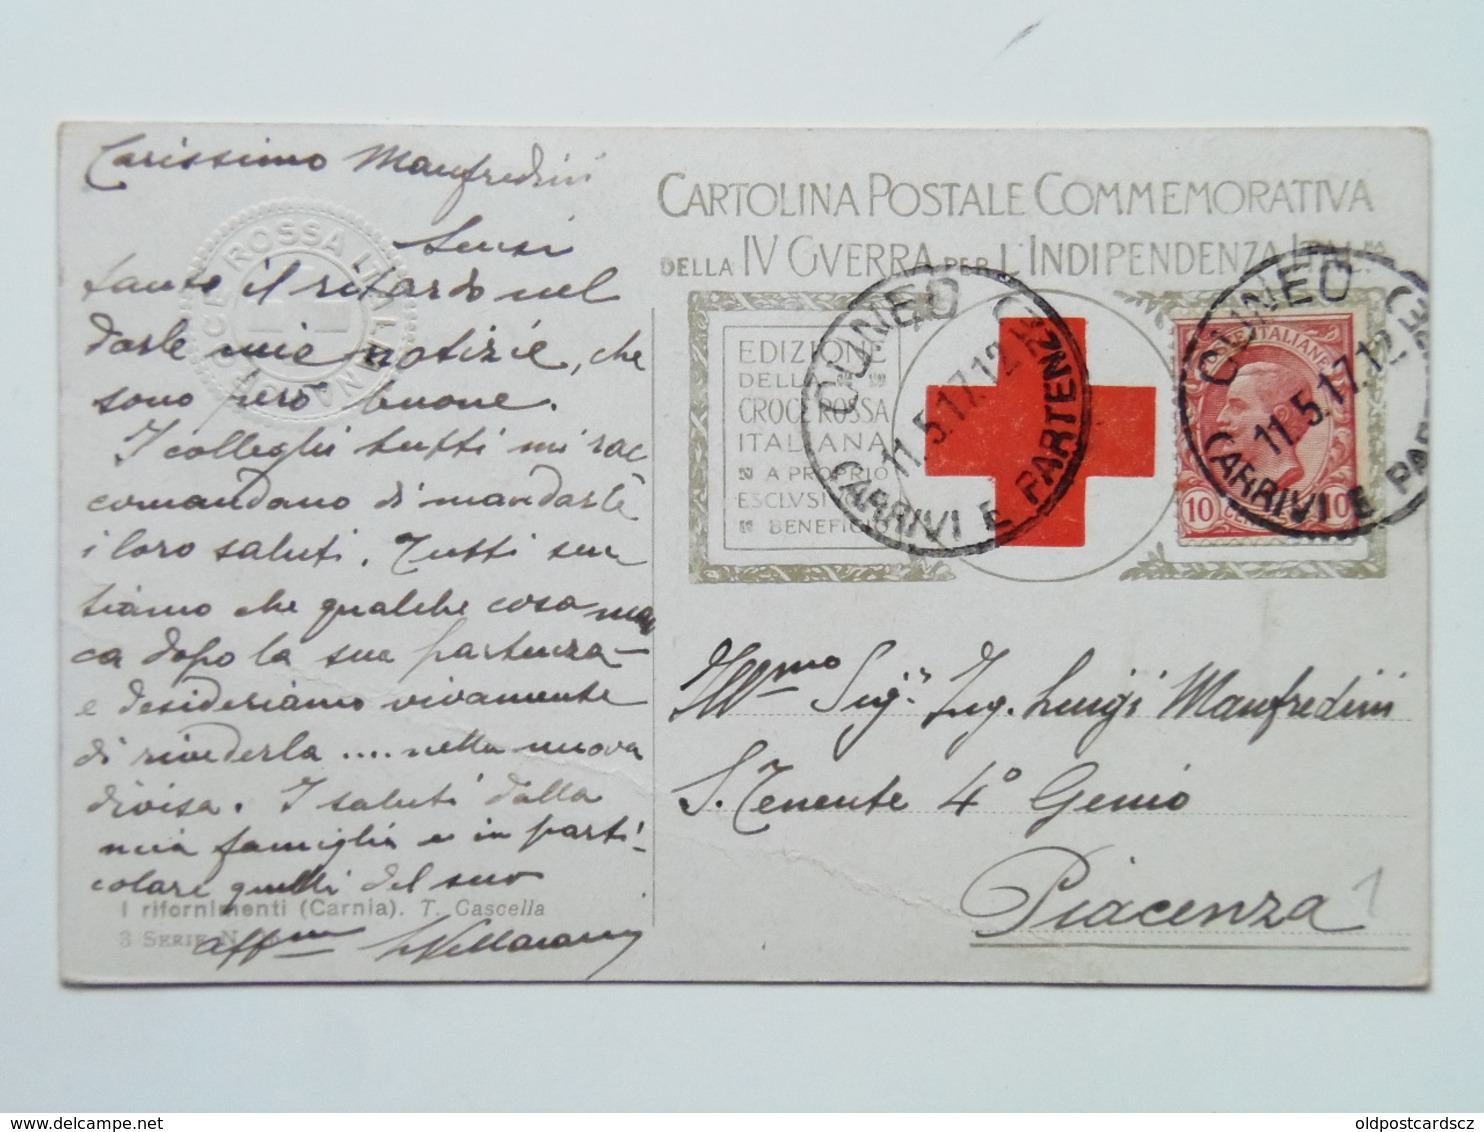 Carissimo Manfredini
Scusi
tanto il ritardo nel
darle mie notizie, che
sono pero buone.
I colleghi tutti mi rac
comandano di mandarle
i loro saluti. Tutti sen
tiamo che qualche cosa man
ca dopo la sua partenza -
e desideriamo vivamente
di rivederla .... nella nuova
divisa. I saluti dalla
mia famiglia e in parti
colare quelli del suo
I rifornimenti (Carnia). T. Cascella
3 SERIE N.
affmo
CROCE ROSSA ITALIANA
CARTOLINA POSTALE COMMEMORATIVA
DELLA IV GVERRA PER L'INDIPENDENZA ITALIANA
EDIZIONE
DELLA
CROCE ROSSA
ITALIANA
A PROPRIO
ESCLVSIVO
BENEFICIO
CUNEO
11.5.17.12
(ARRIVI E PARTENZE)
POSTE ITALIANE
10 CENT. 10
CUNEO
11.5.17.12
(ARRIVI E PAR
Ill.mo Sig.r Ing. Luigi Manfredini
S. Tenente 4° Genio
Piacenza
1
www.delcampe.net
oldpostcardscz